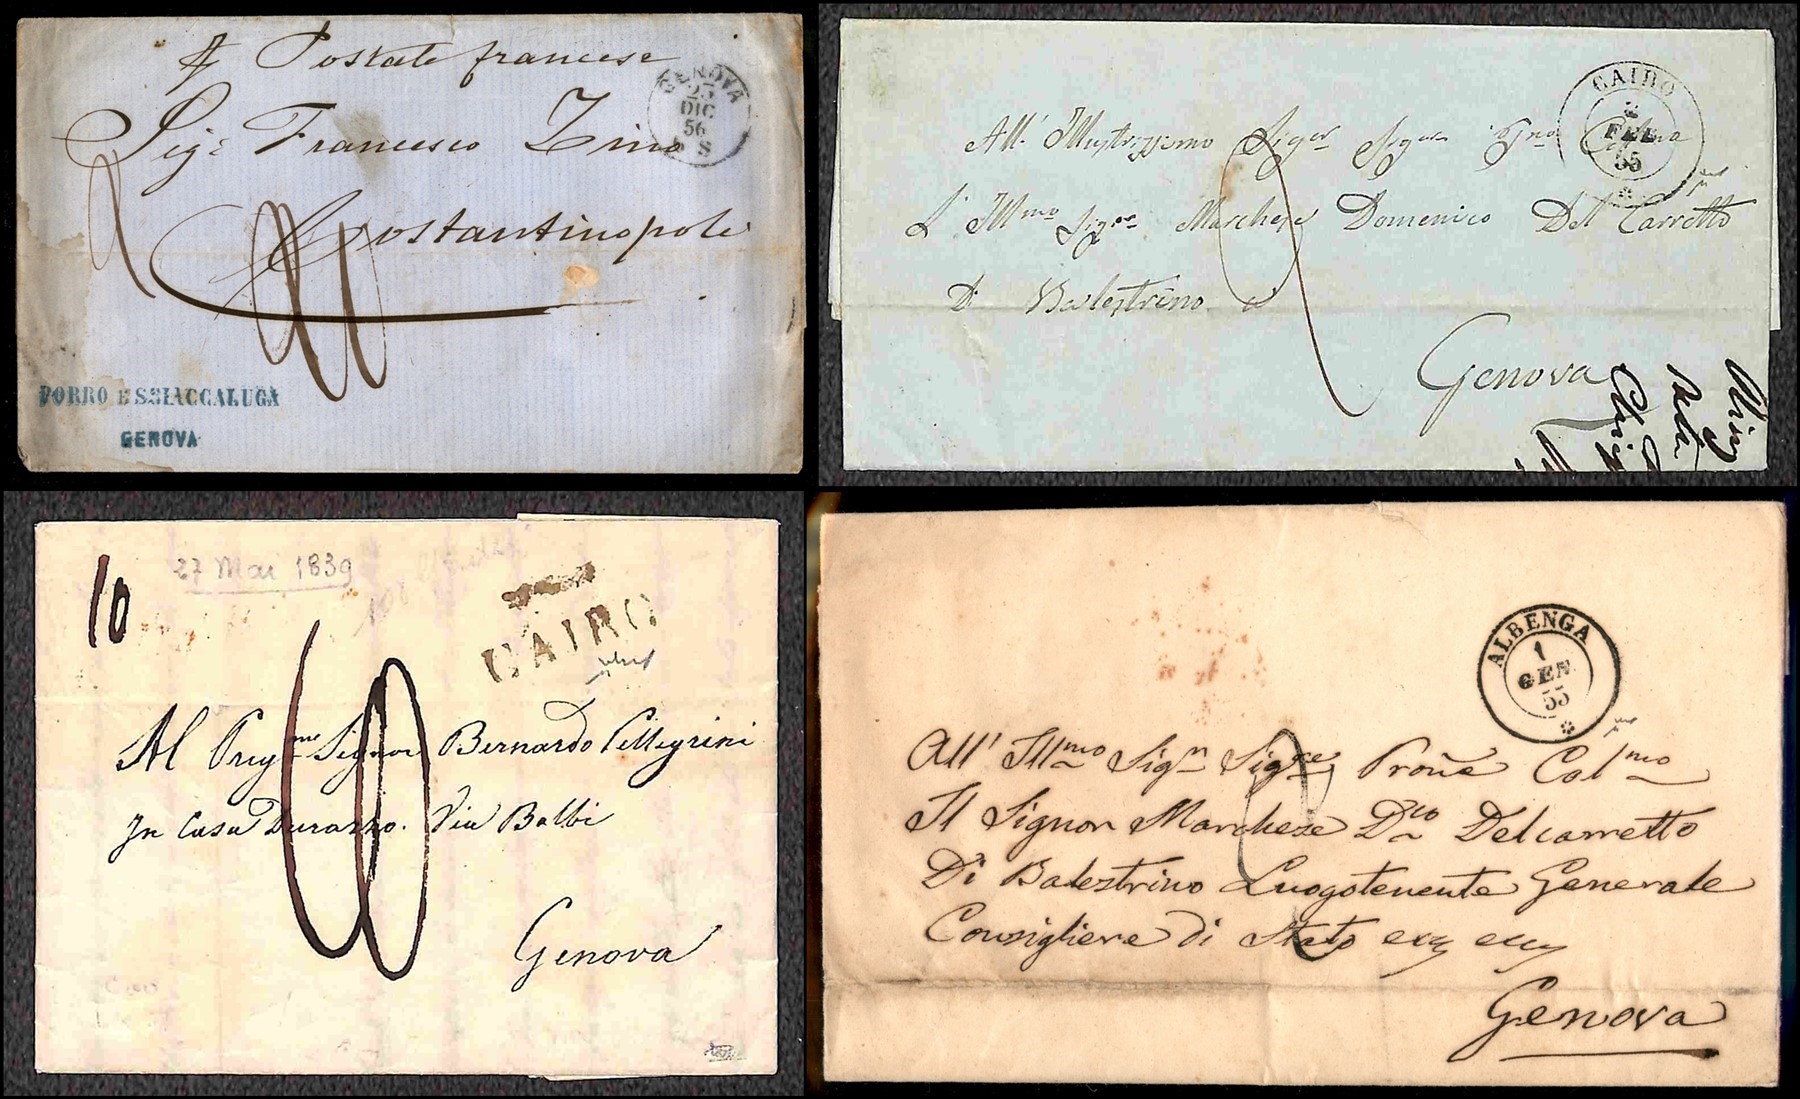 Postale francese
GENOVA
DIC
56
S
Sigr Francesco Zino
Costantinopoli
PORRO E SCIACCALUGA
GENOVA
CAIRO
2
FEB
55
All' Illustrissimo Sigor
L' Illmo Sigor Marchese Domenico Del Carretto
Di Balestrino a
Genova
10
27 Mai 1839
CAIRO
Al Prigmo Signor Bernardo Pellegrini
In Casa Durazzo. Via Balbi
Genova
ALBENGA
1
GEN
55
All' Illmo Sign Sigre Prone Colmo
Il Signor Marchese Dco Delcarretto
Di Balestrino Luogotenente Generale
Consigliere di Stato
Genova